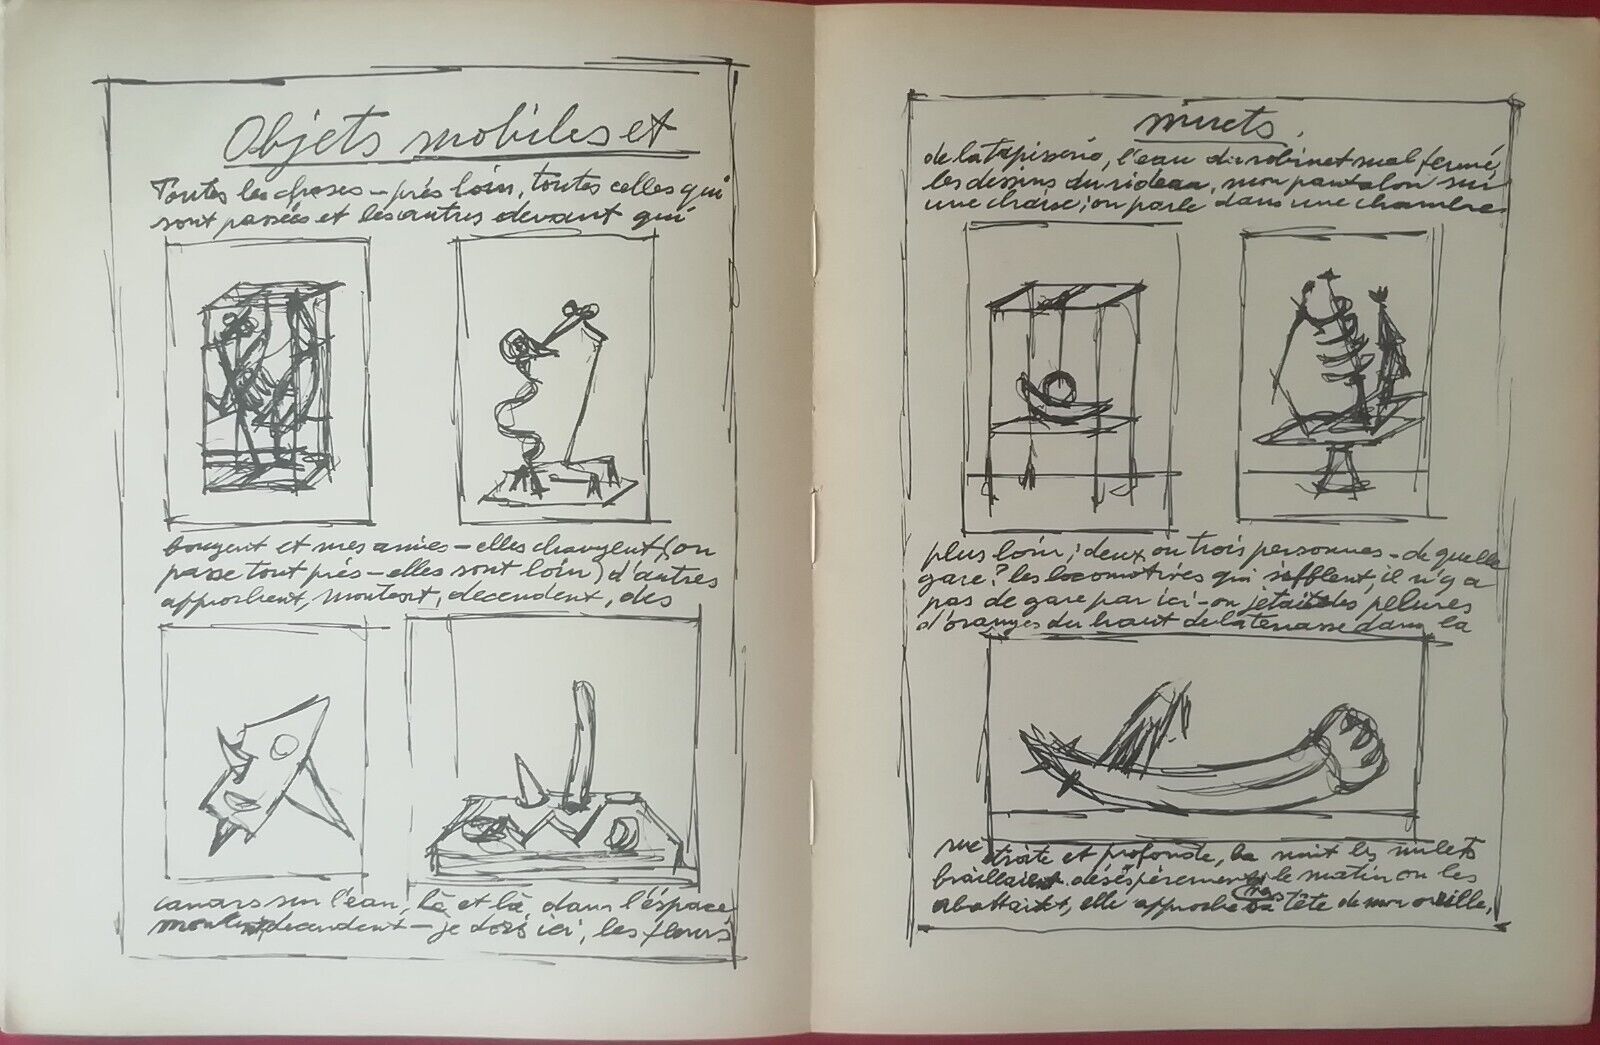 Objets mobiles et
Toutes les choses – près loin, toutes celles qui
sont passées et les autres devant qui
bougent et mes amies – elles changent (on
passe tout près – elles sont loin) d'autres
approchent, montent, decendent, des
canars sur l'eau, là et là, dans l'éspace
montent decendent – je dors ici, les fleurs
muets.
de la tapisserie, l'eau du robinet mal fermé,
les dessins du rideau, mon pantalon sur
une chaise; on parle dans une chambre
plus loin; deux ou trois personnes – de quelle
gare? les locomotives qui sifflent, il n'y a
pas de gare par ici – on jetait des pelures
d'oranges du haut de la terrasse dans la
rue étroite et profonde, la nuit les mulets
braillaient déséspérement, le matin on les
abattait, elle approche sa tête de mon oreille,